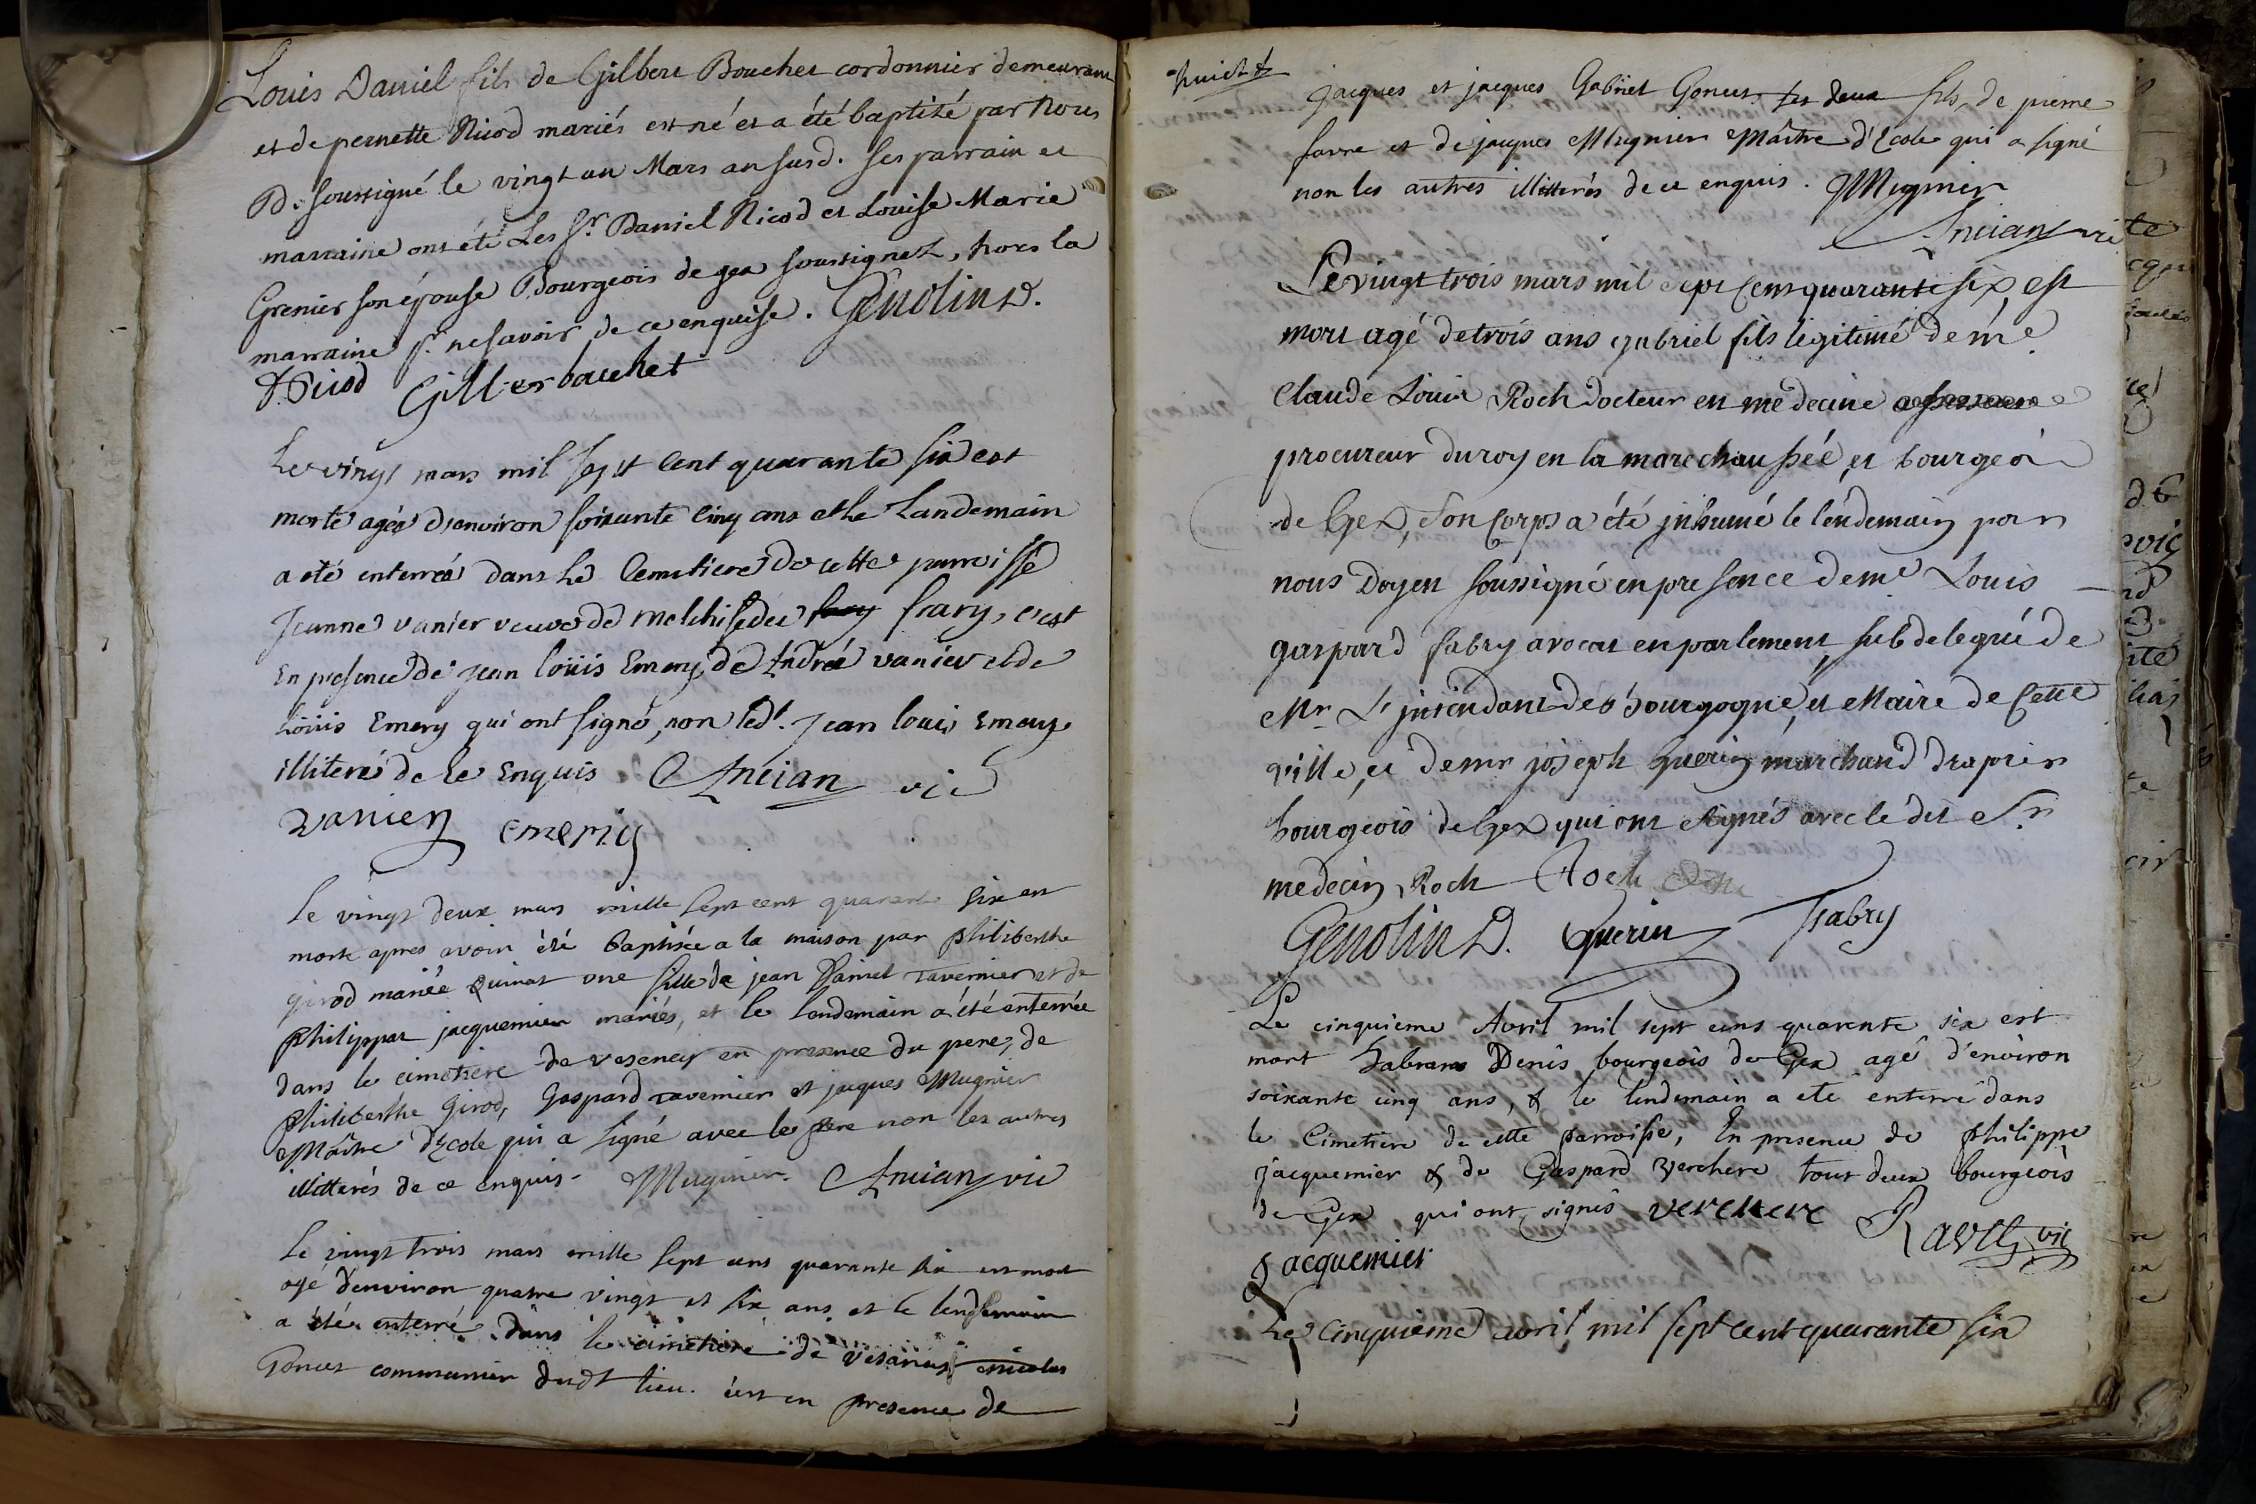 Louis Daniel fils de Gilbert Bouchet cordonnier demeurant
et de pernette Nicod mariés est né et a été baptisé par Nous
D. soussigné le vingt un Mars an susd. ses parrain et
marraine ont été Les Sr. Daniel Nicod et Louise Marie
Grenier son épouse Bourgeois de gex soussignez, hors la
marraine pr. ne savoir de ce enquise. Genolin D.
D Nicod Gillber bouchet
Le vingt mars mil sept Cent quarante six est
morte agée d'environ soixante Cinq ans et Le Landemain
a eté enterreé dans Le Cemetiere de cette parroisse
Jeanne vanier veuve de melchisedec frary, c'est
En presence de jean louis Emery, de André vanier et de
Louis Emery qui ont signé, non led. Jean louis Emery
illiteré de Ce Enquis Ancian vic
vanier emeriy
le vingt deux mars mille sept cent quarante six est
morte apres avoir été baptisée a la maison par philiberthe
girod mariée quinat une fille de jean Daniel Tavernier et de
philippas jacquemier mariés, et le landemain a été enterrée
dans le cimetiere de vesency en presence du pere, de
philiberthe Girod, Gaspard Tavernier et jaques Mugnier
Maître d'Ecole qui a signé avec le pere non les autres
illitterés de ce enquis. Mugnier. Ancian vic
le vingt trois mars mille sept cens quarante six est mort
agé d'environ quatre vingt et six ans et le lendemain
a été enterré dans le cimetiere de vesancy nicolas
Gonet communier dudt lieu. c'est en presence de
jacques et jacques Gabriel Gonet. les deux fils, de pierre
favre et de jacques Mugnier Maître d'Ecole qui a signé
non les autres illitterés de ce enquis. JMugnier
Ancian vic
Le vingt trois mars mil sept Cens quarante six, est
mort agé de trois ans gabriel fils légitime de me.
Claude Louis Roch docteur en médecine
procureur du roy en la marechaussée, et bourgeois
de Gex, son Corps a été jnhumé le lendemain par
nous Doyen soussigné en presence de me. Louis
gaspard fabry avocat en parlement, subdelegué de
Mr. L'jntendant de bourgogne, et Maire de Cette
ville, et de mr joseph guerin marchand drapier
bourgeois de Gex qui ont signés avec le dit Sr.
medecin Roch Roch
Genolin D. Guerin Fabry
Le cinquieme Avril mil sept cens quarente six est
mort Denis bourgeois de Gex agé d'environ
soixante cinq ans, & le lendemain a eté enterré dans
le Cimetiere de cette parroisse, En presence de philippe
jacquemier & de Gaspard Verchere tout deux bourgeois
de Gex qui ont signés verchere Ravet vic
Jacquemier
Le Cinquieme avril mil sept cent quarante six